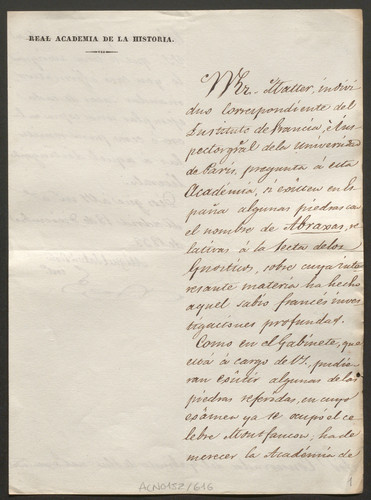 REAL ACADEMIA DE LA HISTORIA.
Mr. Matter, indivi
duo Correspondiente del
Instituto de Francia, é Ins
pector gral de la Universidad
de Paris, pregunta á esta
Academia, si ecsisten en Es
paña algunas piedras con
el nombre de Abraxas, re
lativas á la Secta de los
Gnosticos, sobre cuya inte
resante materia ha hecho
aquel sabio francés inves
tigaciones profundas.
Como en el Gabinete, que
está á cargo de V. pudie
ran ecsistir algunas de las
piedras referidas, en cuyo
ecsámen ya se ocupó el ce
lebre Montfaucon, ha de
merecer la Academia de
ACNO152/616
1